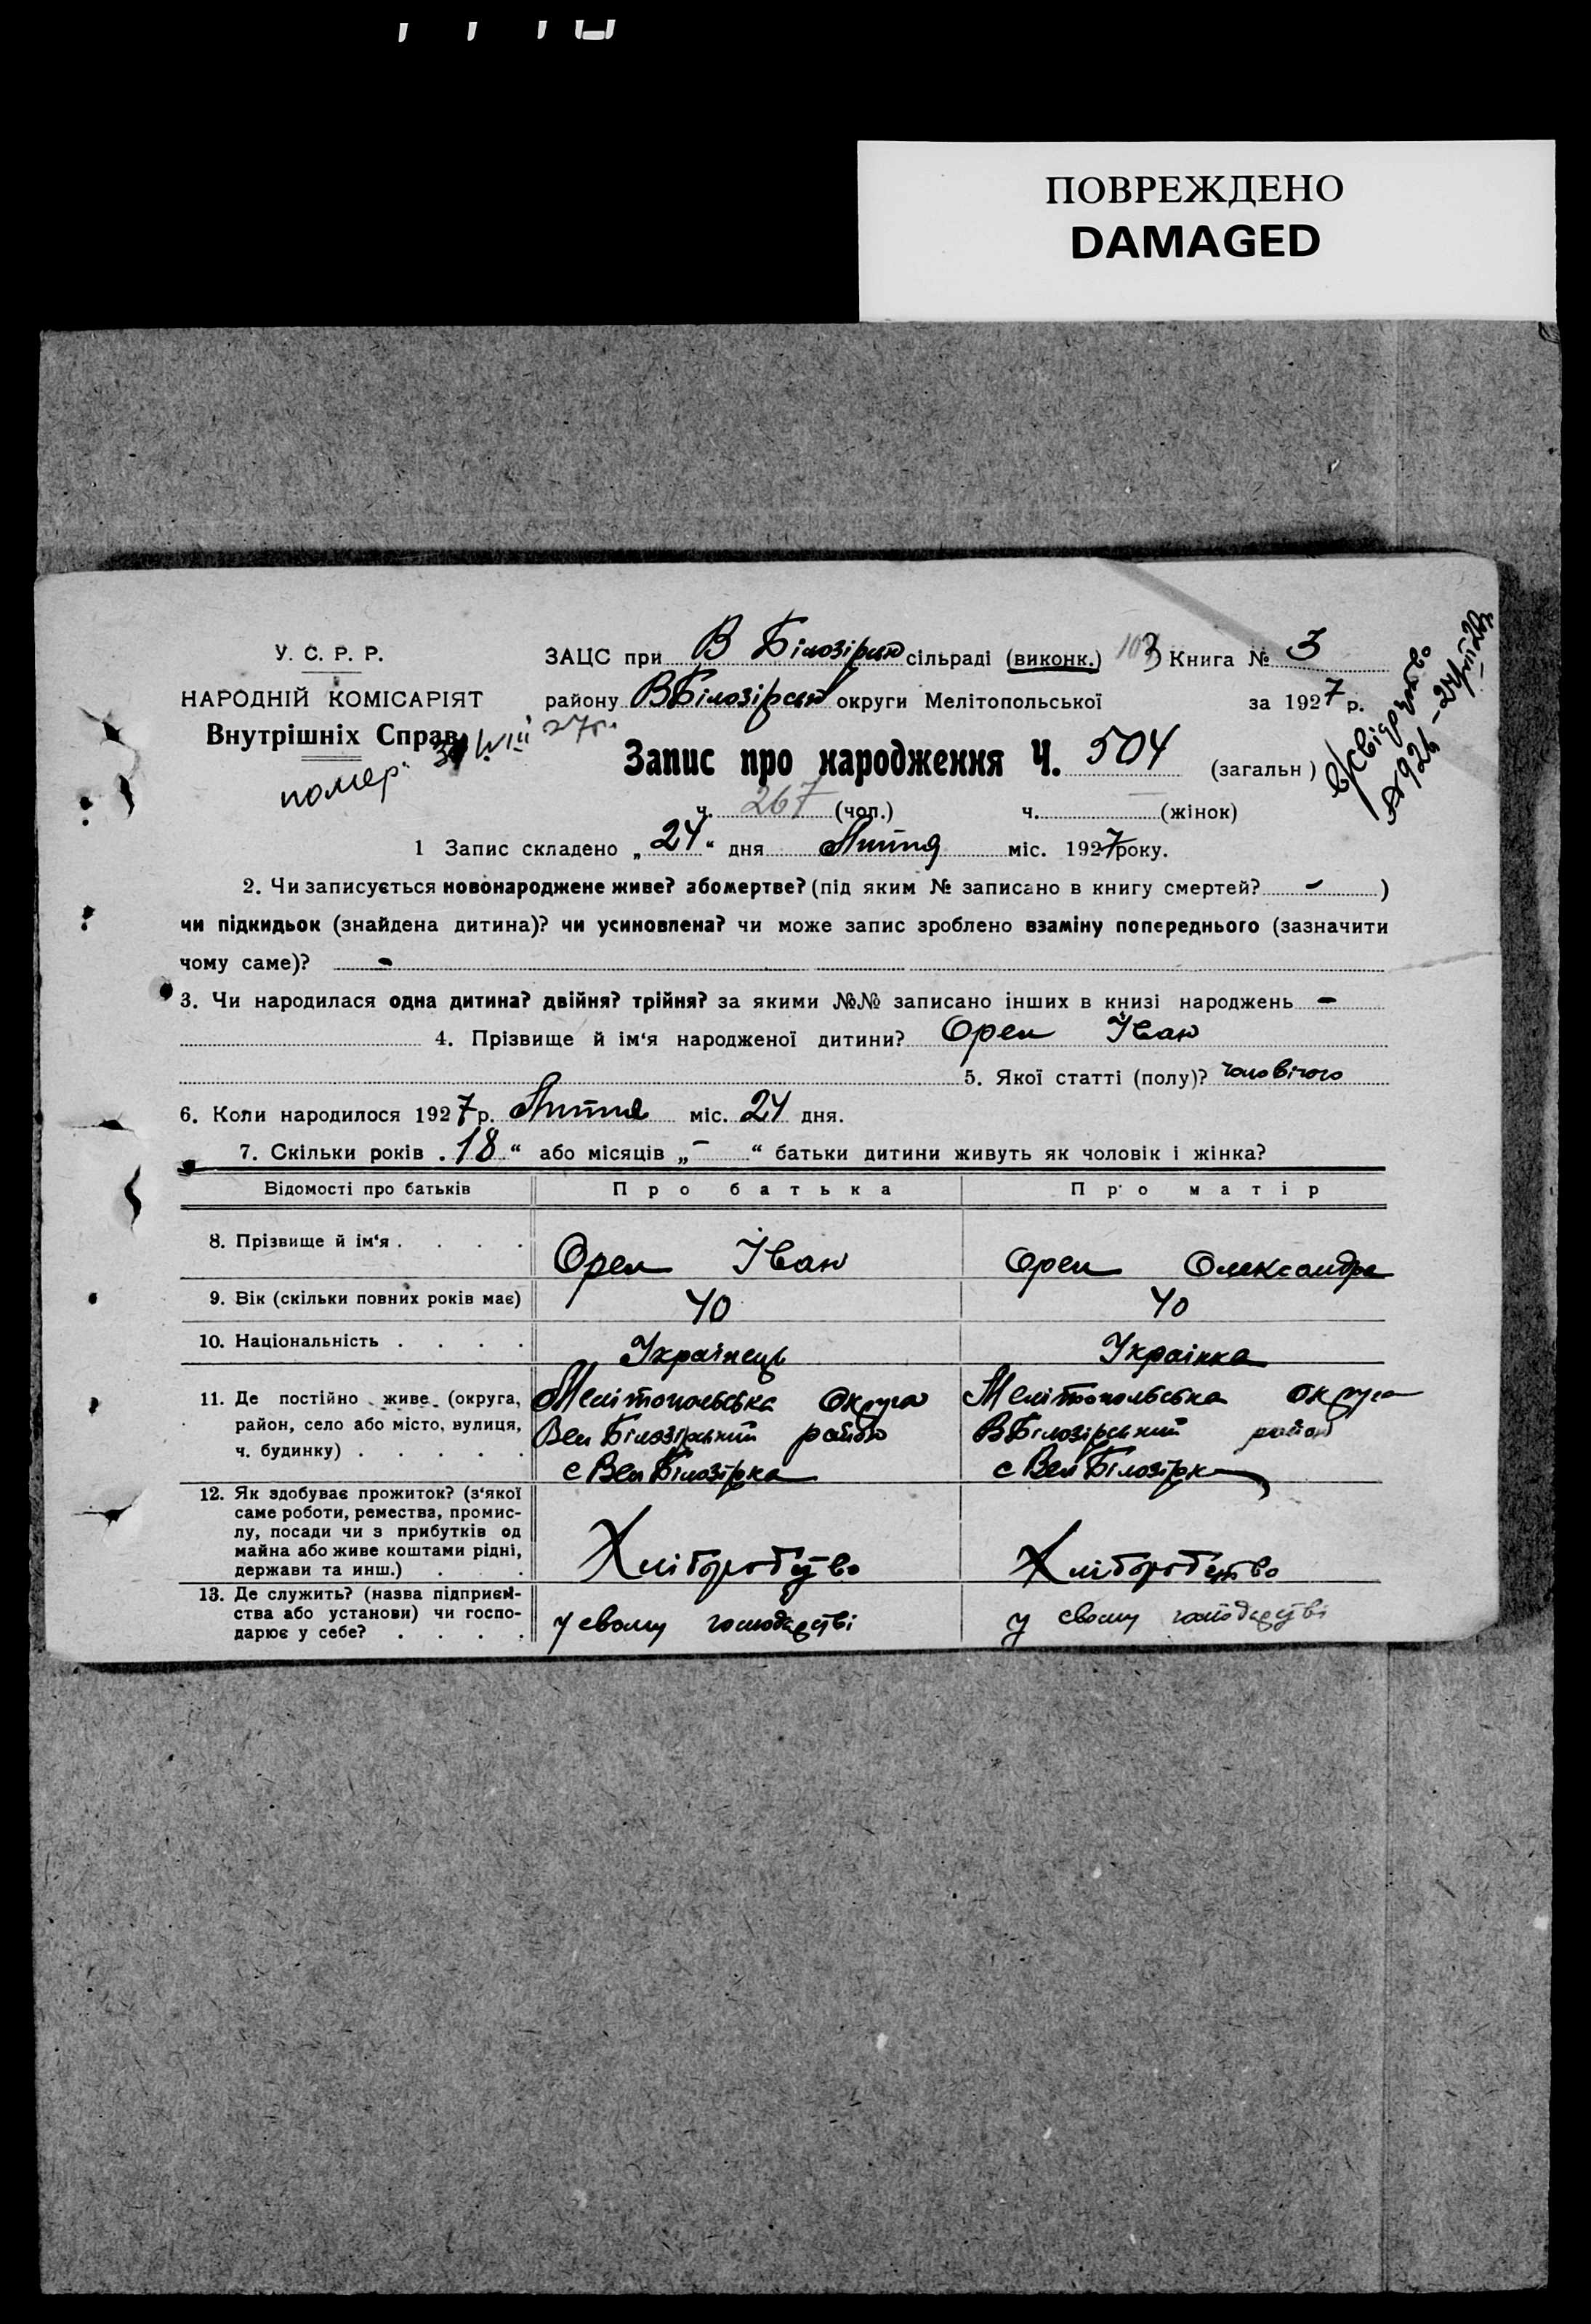 ПОВРЕЖДЕНО
DAMAGED
У. С. Р. Р.
НАРОДНІЙ КОМІСАРІЯТ
Внутрішніх Справ
помер. VIII 27 р.
ЗАЦС при В Білозірці сільраді (виконк.) 103 Книга № 3
району ВБілозірськ округи Мелітопольської за 1927 р.
Запис про народження Ч. 504 (загальн)
ч. 267 (чол.) ч. — (жінок)
1 Запис складено „24“ дня Липня міс. 1927 року.
2. Чи записується новонароджене живе? або мертве? (під яким № записано в книгу смертей? - )
чи підкидьок (знайдена дитина)? чи усиновлена? чи може запис зроблено взаміну попереднього (зазначити
чому саме)? -
3. Чи народилася одна дитина? двійня? трійня? за якими №№ записано інших в книзі народжень -
4. Прізвище й ім‘я народженої дитини? Орел Іван
5. Якої статті (полу)? чоловічого
6. Коли народилося 1927 р. Липня міс. 24 дня.
7. Скільки років „18“ або місяців „-“ батьки дитини живуть як чоловік і жінка?
Відомості про батьків Про батька Про матір
8. Прізвище й ім‘я . . . . Орел Іван Орел Олександра
9. Вік (скільки повних років має) 40 40
10. Національність . . . . Українець Українка
11. Де постійно живе (округа, Мелітопольська округа Мелітопольська округа
район, село або місто, вулиця, Вел Білозірський район ВБілозірський район
ч. будинку) . . . . . с Вел Білозірка с Вел Білозірка
12. Як здобуває прожиток? (з‘якої
саме роботи, ремества, промис-
лу, посади чи з прибутків од
майна або живе коштами рідні, Хліборобство Хліборобство
держави та инш.) . .
13. Де служить? (назва підприєм-
ства або установи) чи госпо- у свому господарстві у свому господарстві
дарює у себе? . . . .